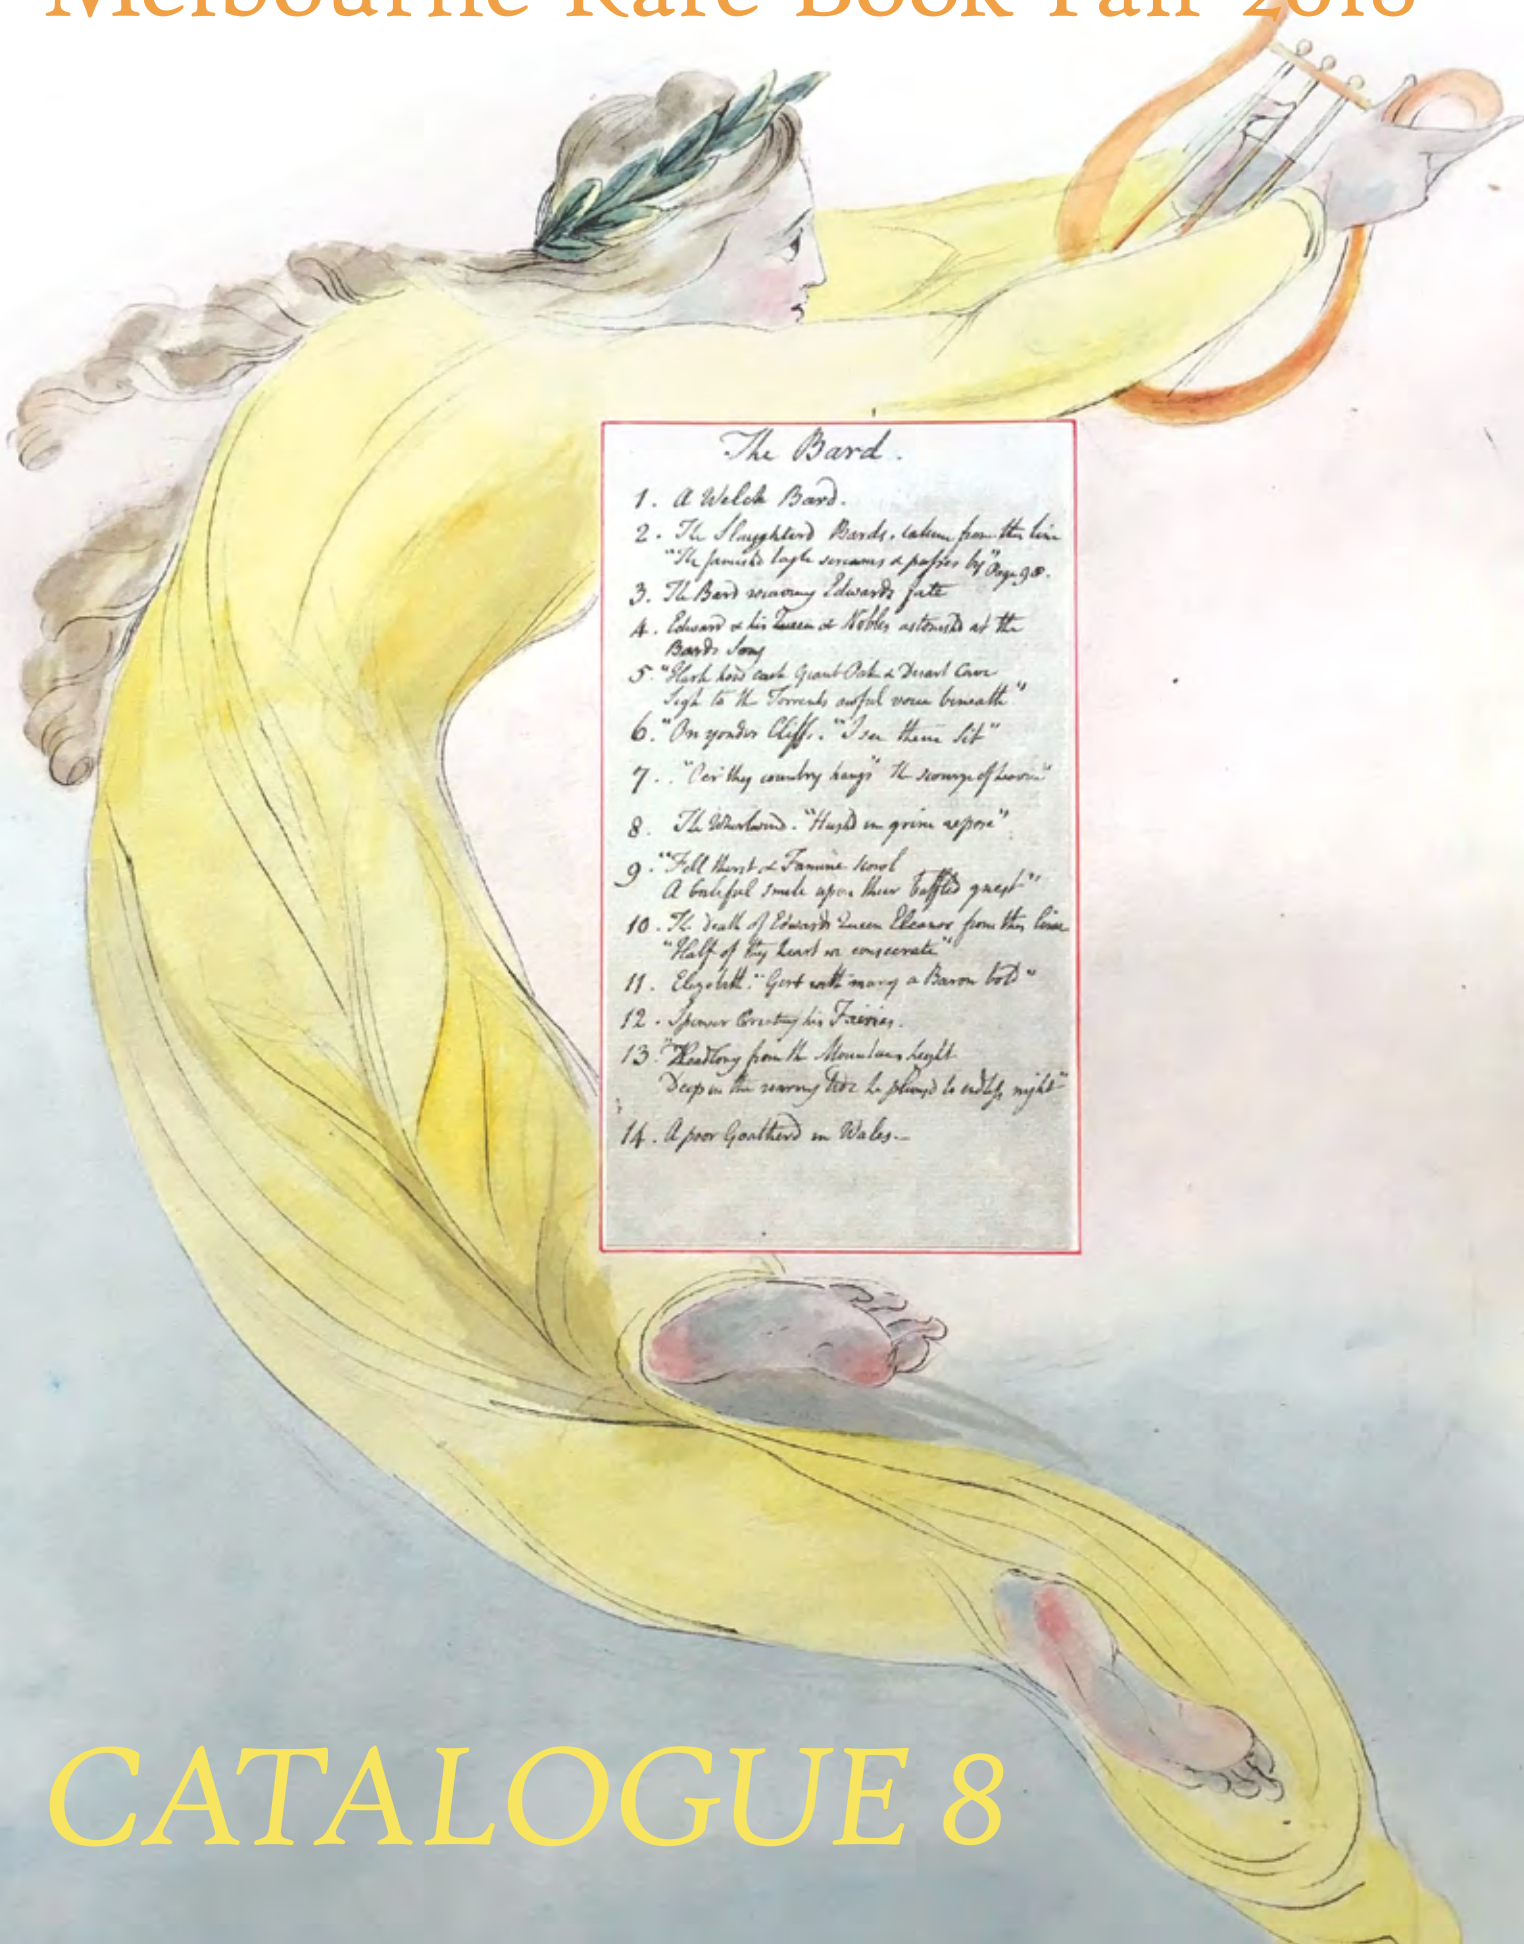 Melbourne Rare Book Fair 2018
The Bard.
1. A Welch Bard.
2. The Slaughterd Bards, taken from the line
"The famishd Eagle screams & passes by" Page 98.
3. The Bard weaving Edwards fate
4. Edward & his Queen & Nobles astonishd at the
Bards Song
5. "Hark how each Giant Oak & Desart Cave
Sigh to the Torrents awful voice beneath"
6. "On yonder Cliffs. "I see them Sit"
7. "Oer thy country hangs" The scourge of heaven"
8. The Whirlwind. "Hushd in grim repose"
9. "Fell thirst & Famine Scowl
A baleful smile upon their baffled guest"
10. The death of Edwards Queen Eleanor from this line
"Half of thy heart we consecrate"
11. Elizabeth. "Girt with many a Baron bold"
12. Spenser Creating his Fairies.
13. "Headlong from the Mountains height
Deep in the roaring tide he plungd to endless night"
14. A poor Goatherd in Wales.
CATALOGUE 8